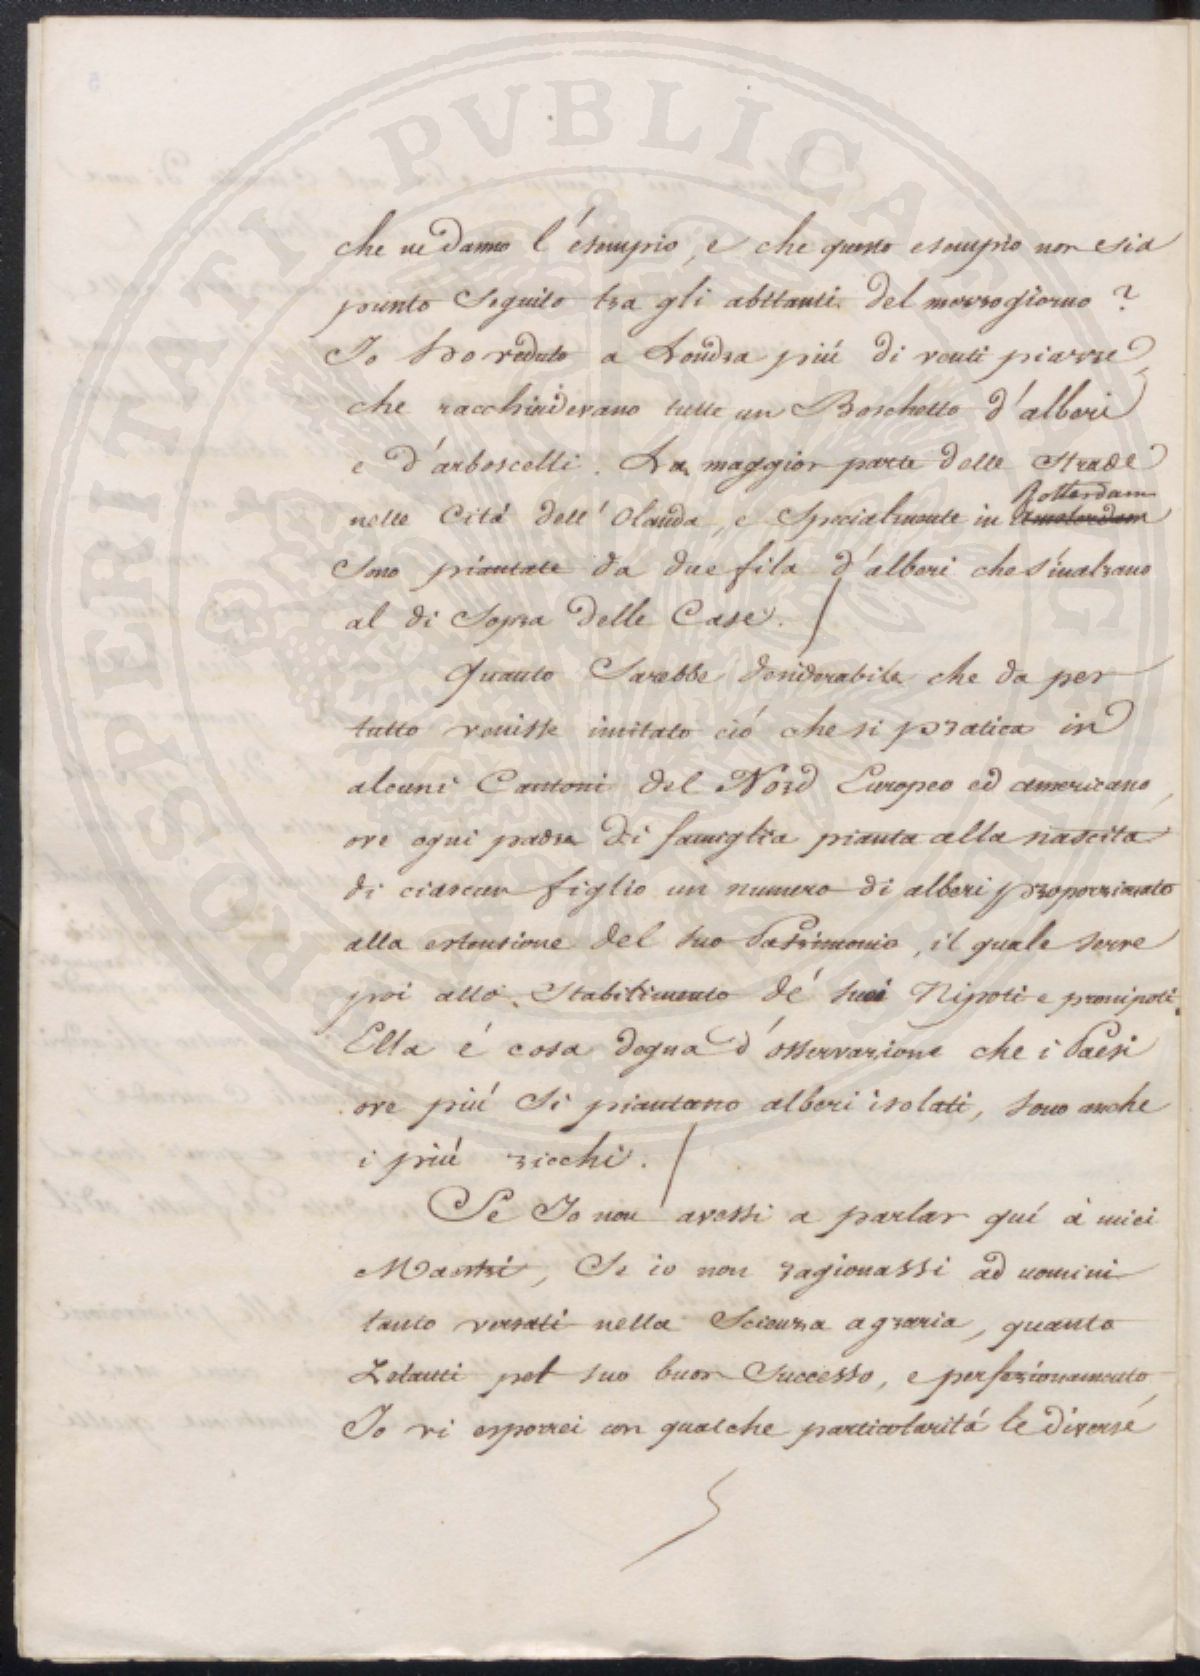 PROSPERITATI PVBLICAE AVGENDAE
che ne danno l'ésempio, e che questo esempio non sia
punto seguito tra gli abitanti del mezzogiorno?
Io ho veduto a Londra piú di venti piazze
che racchiudevano tutte un Boschetto d'alberi
e d'arboscelli. La maggior parte delle strade
Rotterdam
nelle Citá dell'Olanda, e specialmente in Amsterdam
sono piantate da due fila d'alberi che s'inalzano
al di sopra delle Case.
Quanto sarebbe desiderabile che da per
tutto venisse imitato ció che si pratica in
alcuni Cantoni del Nord Europeo ed americano,
ove ogni padre di famiglia pianta alla nascita
di ciascun figlio un numero di alberi proporzionato
alla estensione del suo Patrimonio, il quale serve
poi allo stabilimento de' suoi Nipoti e pronipoti.
Ella é cosa degna d'osservazione che i Paesi
ove piú si piantano alberi isolati, sono anche
i piú ricchi.
Se Io non avessi a parlar quí á miei
Maestri, Se io non ragionassi ad uomini
tanto versati nella Scienza agraria, quanto
Zelanti pel suo buon successo, e perfezionamento,
Io vi esporrei con qualche particolaritá le diverse